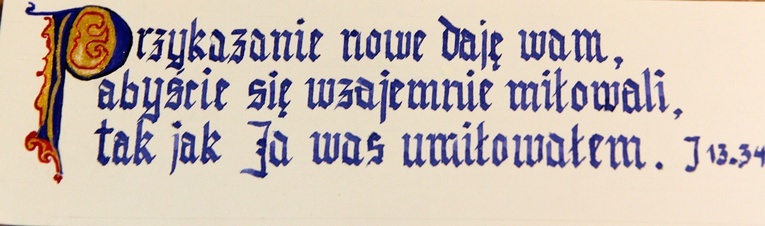 Przykazanie nowe daję wam,
abyście się wzajemnie miłowali,
tak jak Ja was umiłowałem. J 13.34